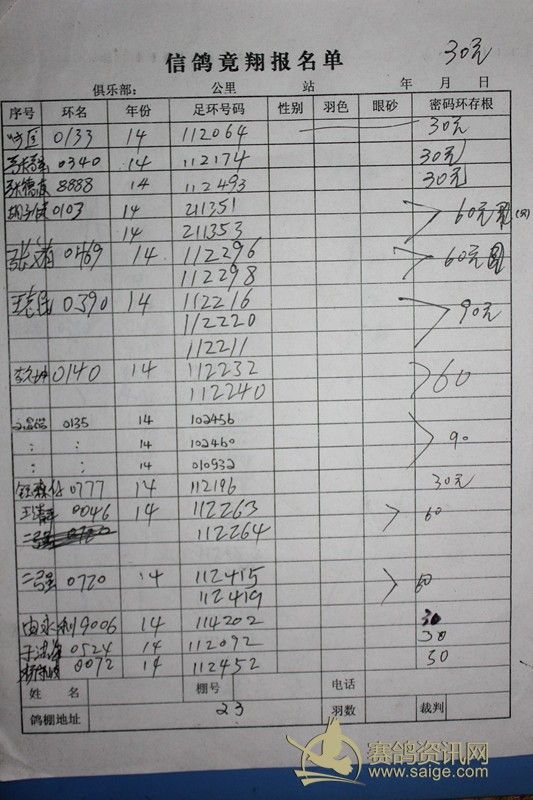 30元
信鸽竟翔报名单
俱乐部： 公里 站 年 月 日
序号 环名 年份 足环号码 性别 羽色 眼砂 密码环存根
0133 14 112064 30元
0340 14 112174 30元
张德 8888 14 112493 30元
0103 14 211351 60元
14 211353
张 0469 14 112296 60元
112298
王 0390 14 112216 90元
112220
112211
0140 14 112232 60
112240
0135 14 102456
： ： 14 102460 90
： ： 14 010932
0777 14 112196 30元
王 0046 14 112263 60
112264
0720 14 112415 60
112419
由永利 9006 14 114202 30
于 0524 14 112092 30
0072 14 112452 30
姓 名 棚号 电话
鸽棚地址 23 羽数 裁判
赛鸽资讯网
www.saige.com